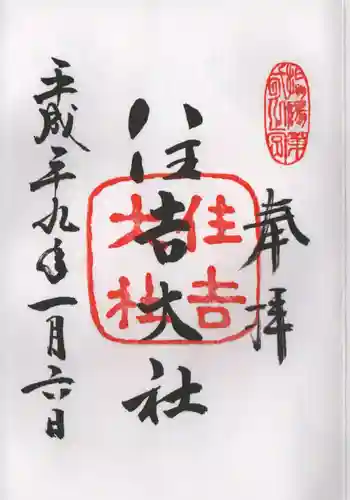 奉拝
住吉大社
住吉大社
平成二十九年一月六日